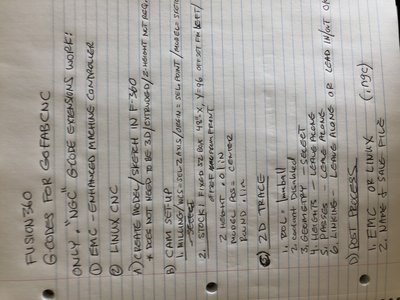 FUSION 360
GCODES FOR GOFABCNC
ONLY ".NGC" GCODE EXTENSIONS WORK:
① EMC - ENHANCED MACHINE CONTROLLER
② LINUX CNC
A) CREATE MODEL/SKETCH IN F360
* DOES NOT NEED TO BE 3D/EXTRUDED/Z-HEIGHT NOT REQ.
B) CAM SETUP
1. MILLING/WCS=SEL Z AXIS/ORIGIN = SEL POINT/MODEL= SKETCH
SELECTED
2. STOCK: FIXED SZ BOX 48"X, Y=96 OFFSET FM LEFT/
OFFSET FROM FRONT
Z HEIGHT 0.1 IN
MODEL POS= CENTER
ROUND .1 in
C) 2D TRACE
1. TOOL -
2. coolant Disabled
3. GEOMETRY - SELECT
4. HEIGHTS - LEAVE ALONE
5. PASSES - LEAVE ALONE
6. LINKING - LEAVE ALONE OR LEAD IN/OUT
D) POST PROCESS
1. EMC OR LINUX (.ngc)
2. NAME & SAVE FILE